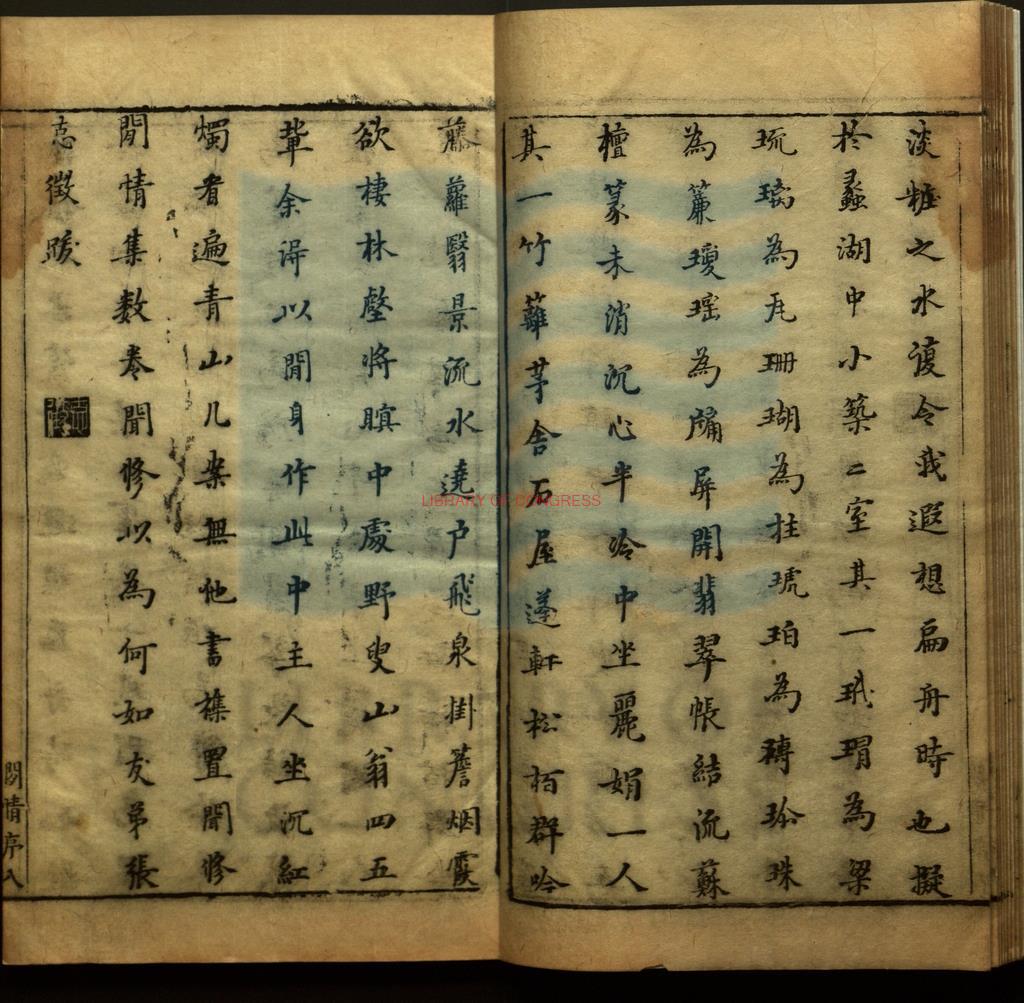 淡粧之水復令我遐想扁舟時也擬
於蠡湖中小築二室其一玳瑁為梁
琉璃為瓦珊瑚為拄琥珀為磚珍珠
為簾瓊瑤為牖屏開翡翠帳結流蘇
檀篆未消沉心半冷中坐麗娟一人
其一竹籬茅舍石屋蓬軒松栢群吟
藤蘿翳景流水遶户飛泉掛簷烟霞
欲棲林壑將暝中處野叟山翁四五
輩余得以閒身作此中主人坐沉紅
燭看遍青山几案無他書樵置閒修
閒情集数卷閒修以為何如友弟張
志徵跋
閒情序八
LIBRARY OF CONGRESS